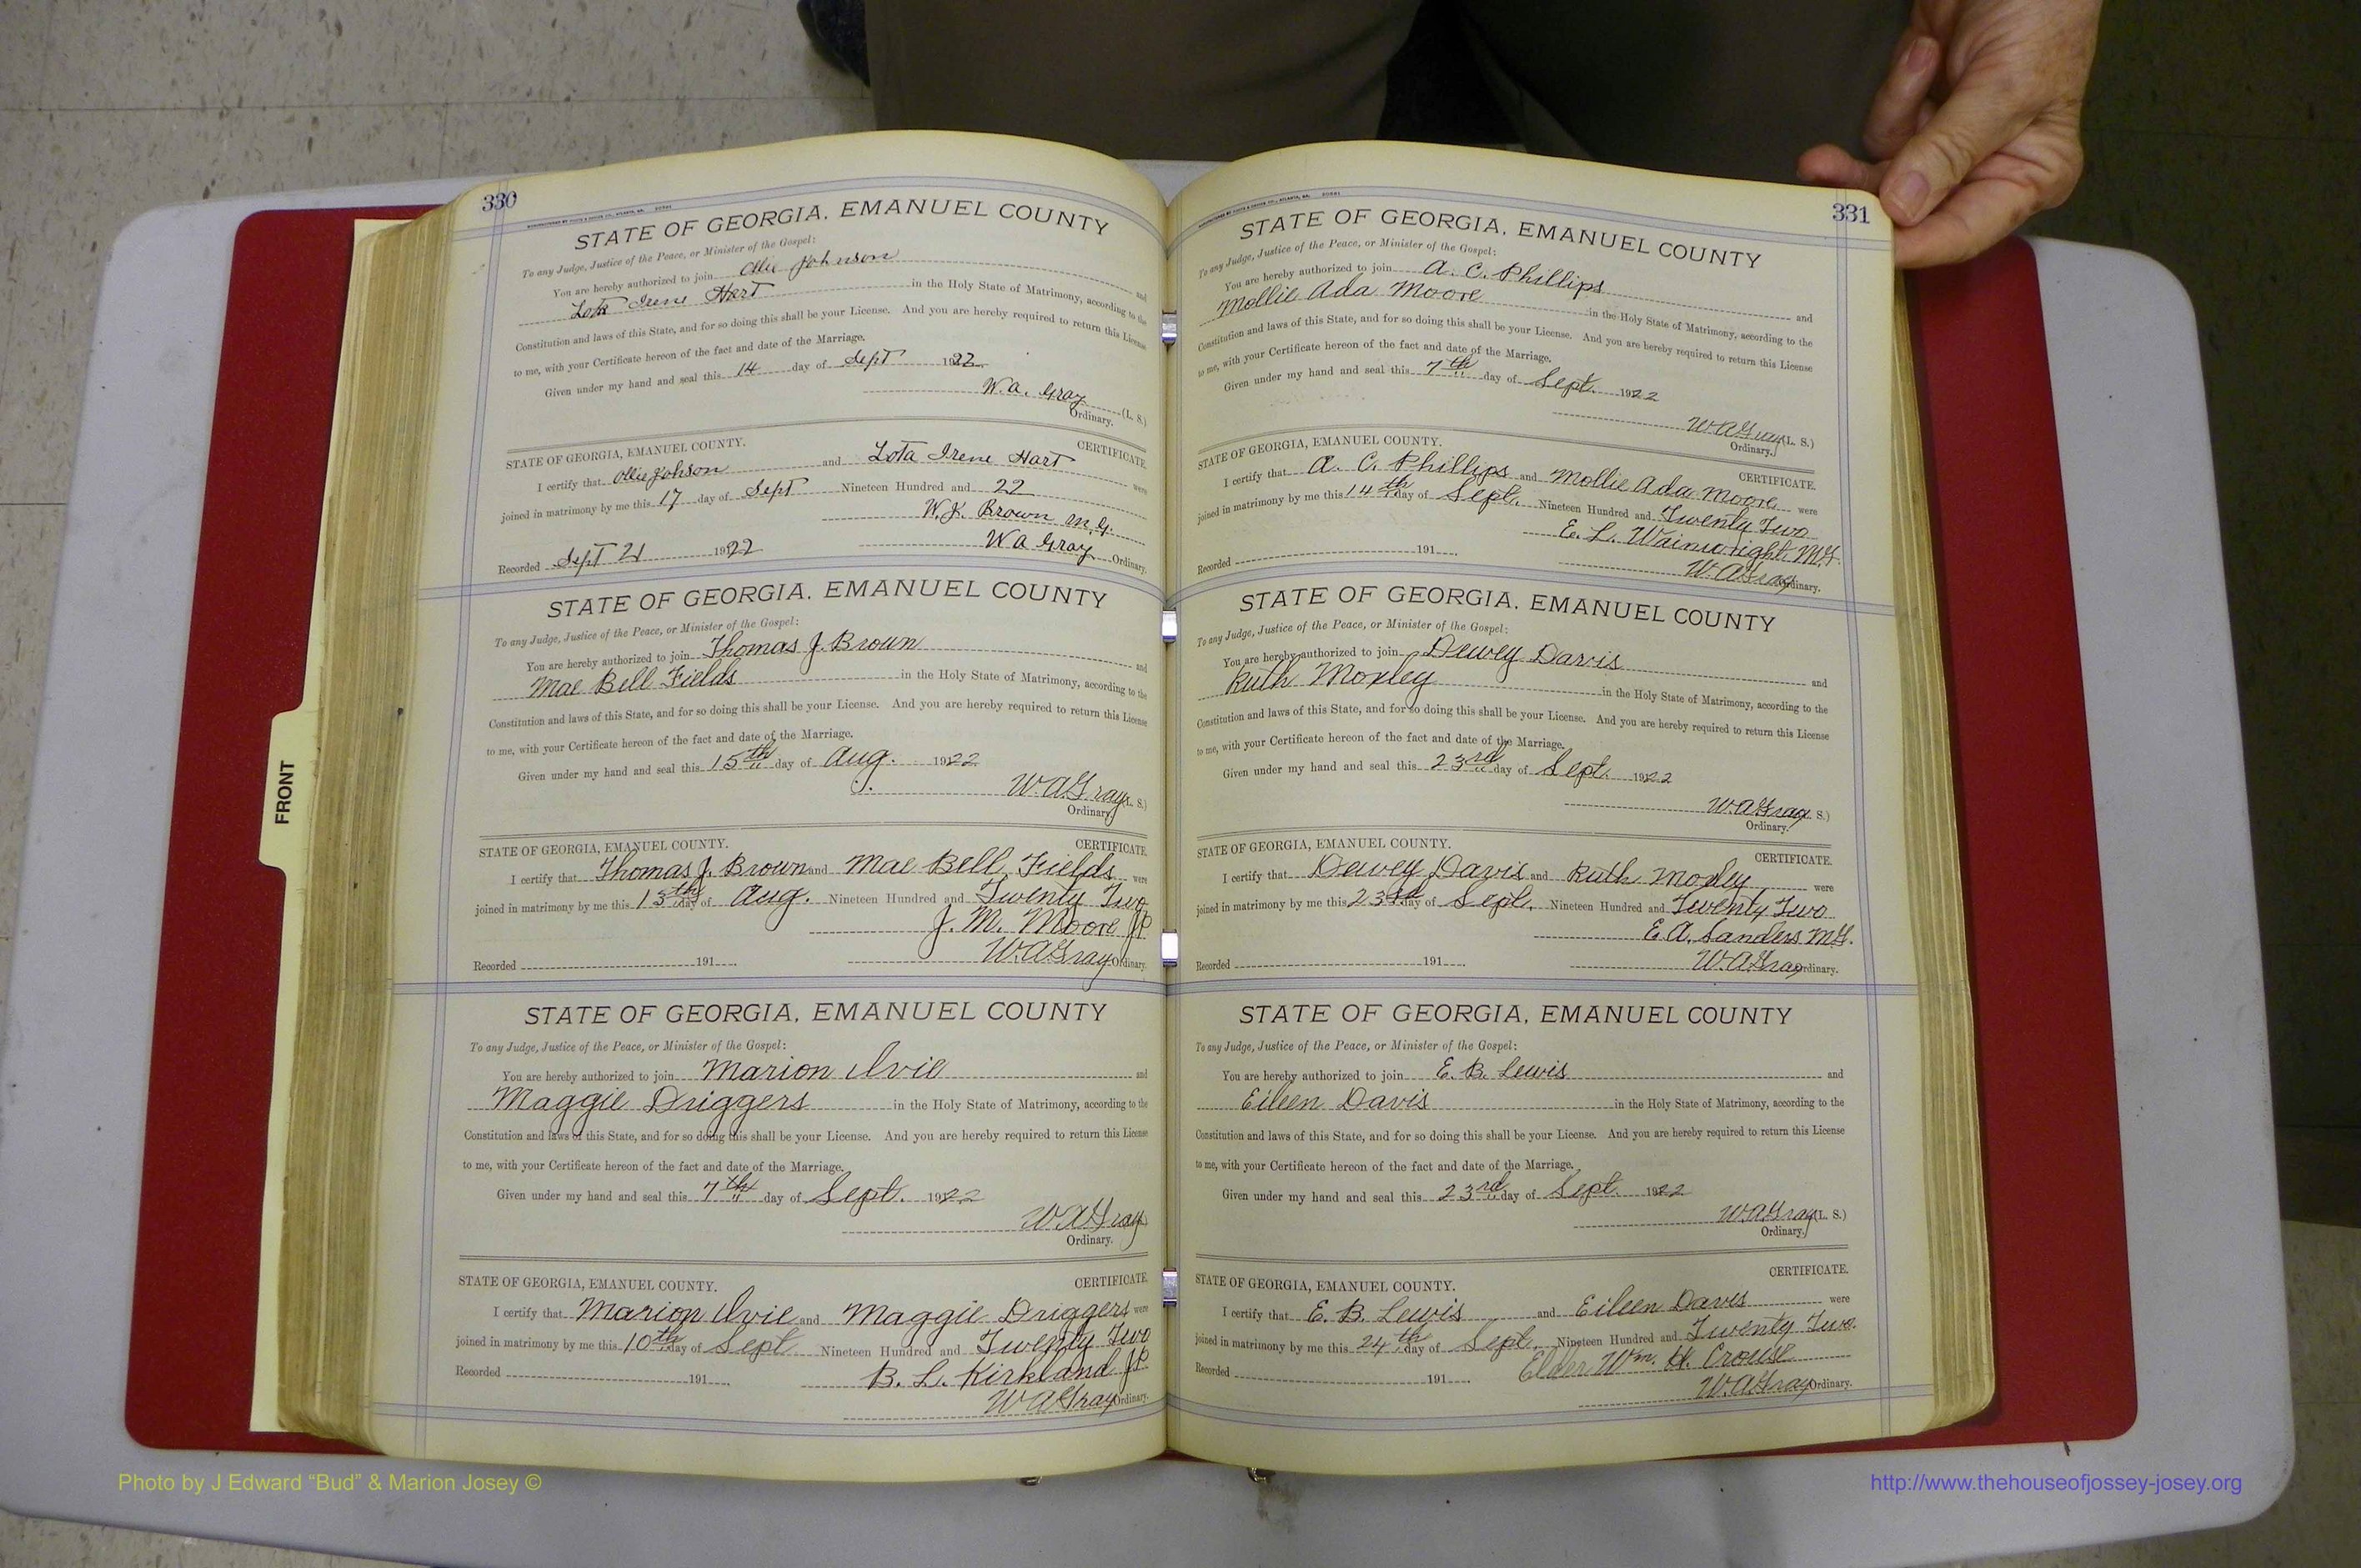 330
STATE OF GEORGIA, EMANUEL COUNTY
To any Judge, Justice of the Peace, or Minister of the Gospel:
You are hereby authorized to join Ollie Johnson and
Lota Irene Hart in the Holy State of Matrimony, according to the
Constitution and laws of this State, and for so doing this shall be your License. And you are hereby required to return this License
to me, with your Certificate hereon of the fact and date of the Marriage.
Given under my hand and seal this 14 day of Sept 1922
W. A. Gray (L. S.)
Ordinary.
STATE OF GEORGIA, EMANUEL COUNTY. CERTIFICATE.
I certify that Ollie Johson and Lota Irene Hart were
joined in matrimony by me this 17 day of Sept Nineteen Hundred and 22
W. K. Brown M.G.
Recorded Sept 21 1922 W A Gray Ordinary.
STATE OF GEORGIA, EMANUEL COUNTY
To any Judge, Justice of the Peace, or Minister of the Gospel:
You are hereby authorized to join Thomas J. Brown and
Mae Bell Fields in the Holy State of Matrimony, according to the
Constitution and laws of this State, and for so doing this shall be your License. And you are hereby required to return this License
to me, with your Certificate hereon of the fact and date of the Marriage.
Given under my hand and seal this 15th day of Aug. 1922
W. A. Gray (L. S.)
Ordinary.
STATE OF GEORGIA, EMANUEL COUNTY. CERTIFICATE.
I certify that Thomas J. Brown and Mae Bell Fields were
joined in matrimony by me this 15th day of Aug. Nineteen Hundred and Twenty Two
J. M. Moore JP
Recorded 191 W. A. Gray Ordinary.
STATE OF GEORGIA, EMANUEL COUNTY
To any Judge, Justice of the Peace, or Minister of the Gospel:
You are hereby authorized to join Marion Ivie and
Maggie Driggers in the Holy State of Matrimony, according to the
Constitution and laws of this State, and for so doing this shall be your License. And you are hereby required to return this License
to me, with your Certificate hereon of the fact and date of the Marriage.
Given under my hand and seal this 7th day of Sept. 1922
W A Gray
Ordinary.
STATE OF GEORGIA, EMANUEL COUNTY. CERTIFICATE.
I certify that Marion Ivie and Maggie Driggers were
joined in matrimony by me this 10th day of Sept Nineteen Hundred and Twenty Two
Recorded 191 B. L. Kirkland JP
W A Gray Ordinary.
331
STATE OF GEORGIA, EMANUEL COUNTY
To any Judge, Justice of the Peace, or Minister of the Gospel:
You are hereby authorized to join A. C. Phillips and
Mollie Ada Moore in the Holy State of Matrimony, according to the
Constitution and laws of this State, and for so doing this shall be your License. And you are hereby required to return this License
to me, with your Certificate hereon of the fact and date of the Marriage.
Given under my hand and seal this 7th day of Sept. 1922
W A Gray (L. S.)
Ordinary.
STATE OF GEORGIA, EMANUEL COUNTY. CERTIFICATE.
I certify that A. C. Phillips and Mollie Ada Moore were
joined in matrimony by me this 14th day of Sept. Nineteen Hundred and Twenty Two
E. L. Wainwright M.G.
Recorded 191 W. A Gray Ordinary.
STATE OF GEORGIA, EMANUEL COUNTY
To any Judge, Justice of the Peace, or Minister of the Gospel:
You are hereby authorized to join Dewey Davis and
Ruth Moxley in the Holy State of Matrimony, according to the
Constitution and laws of this State, and for so doing this shall be your License. And you are hereby required to return this License
to me, with your Certificate hereon of the fact and date of the Marriage.
Given under my hand and seal this 23rd day of Sept. 1922
W. A Gray S.)
Ordinary.
STATE OF GEORGIA, EMANUEL COUNTY. CERTIFICATE.
I certify that Dewey Davis and Ruth Moxley were
joined in matrimony by me this 23rd day of Sept. Nineteen Hundred and Twenty Two
E. A. Sanders M.G.
Recorded 191 W. A Gray Ordinary.
STATE OF GEORGIA, EMANUEL COUNTY
To any Judge, Justice of the Peace, or Minister of the Gospel:
You are hereby authorized to join E. B. Lewis and
Eileen Davis in the Holy State of Matrimony, according to the
Constitution and laws of this State, and for so doing this shall be your License. And you are hereby required to return this License
to me, with your Certificate hereon of the fact and date of the Marriage.
Given under my hand and seal this 23rd day of Sept. 1922
W. A Gray (L. S.)
Ordinary.
STATE OF GEORGIA, EMANUEL COUNTY. CERTIFICATE.
I certify that E. B. Lewis and Eileen Davis were
joined in matrimony by me this 24th day of Sept. Nineteen Hundred and Twenty Two.
Recorded 191 Elder Wm. H. Crouse
W. A Gray Ordinary.
FRONT
Photo by J Edward “Bud” & Marion Josey ©
http://www.thehouseofjossey-josey.org